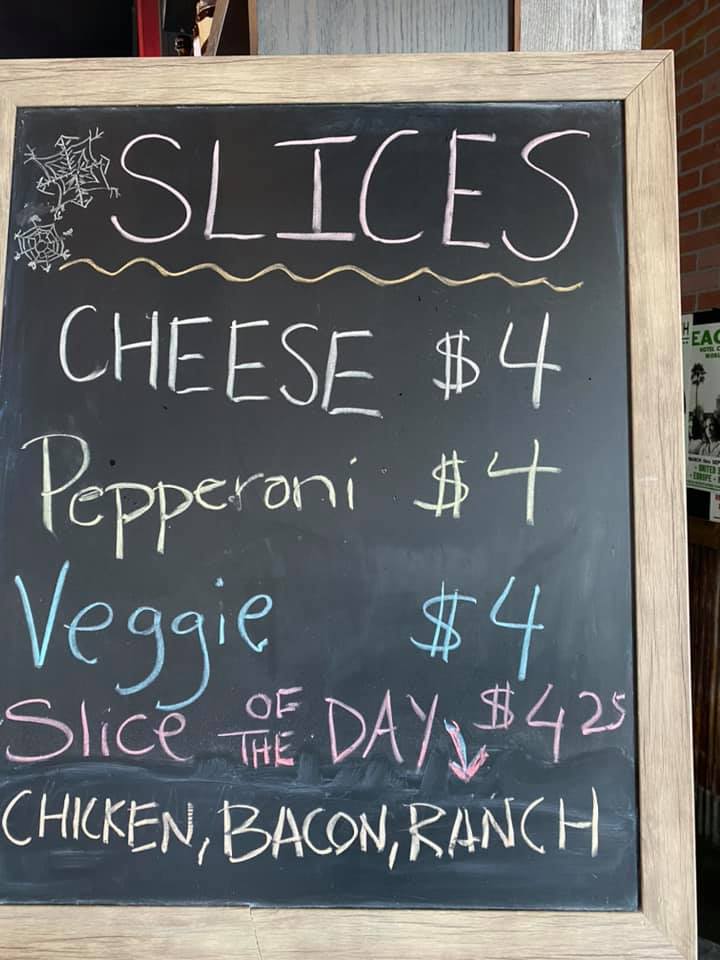 SLICES
CHEESE $4
Pepperoni $4
Veggie $4
Slice OF THE DAY $4 25
CHICKEN, BACON, RANCH
EAG